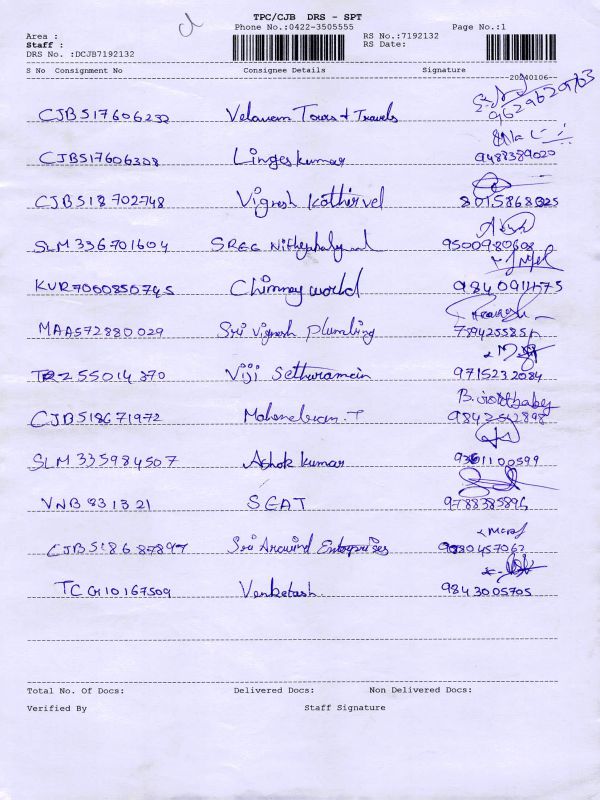 TPC/CJB DRS - SPT
Phone No.:0422-3505555 Page No.:1
Area : RS No.:7192132
Staff : RS Date:
DRS No. :DCJB7192132
S No Consignment No Consignee Details Signature
20240106
9629629763
CJB517606232 Velavan Tours & Travels
CJB517606308 Lingeskumar 9488389020
CJB518702748 Vignesh Kathirvel 8015868325
SLM336701604 SREC 9500980608
KVR7000850745 Chimney world 9840911575
MAA572880029 Sri Vignesh Plumbing
255014370 Viji Sethuramein 9715232084
B.
CJB518671972 9842542898
SLM335984507 Ashok kumar 9361100599
VNB831321 SEAT 9788385896
CJB518687897 Sri Aravind Enterprises 9080457062
TCG110167509 Venketash 9843005705
Total No. Of Docs: Delivered Docs: Non Delivered Docs:
Verified By Staff Signature